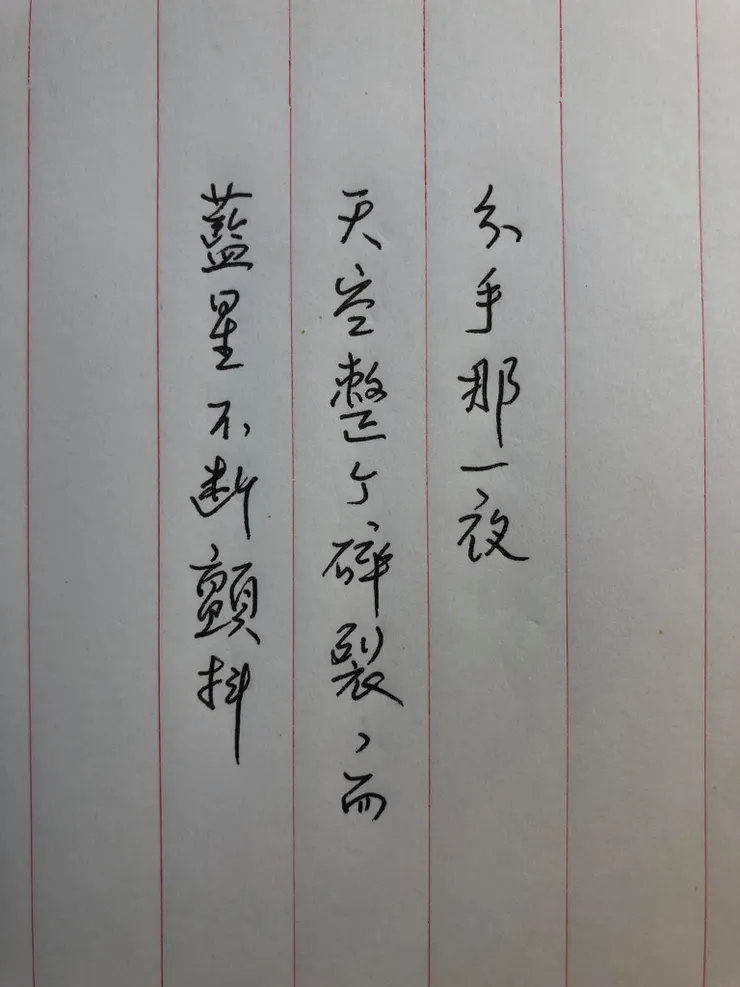 分手那一夜
天空整个碎裂，而
藍星不断顫抖